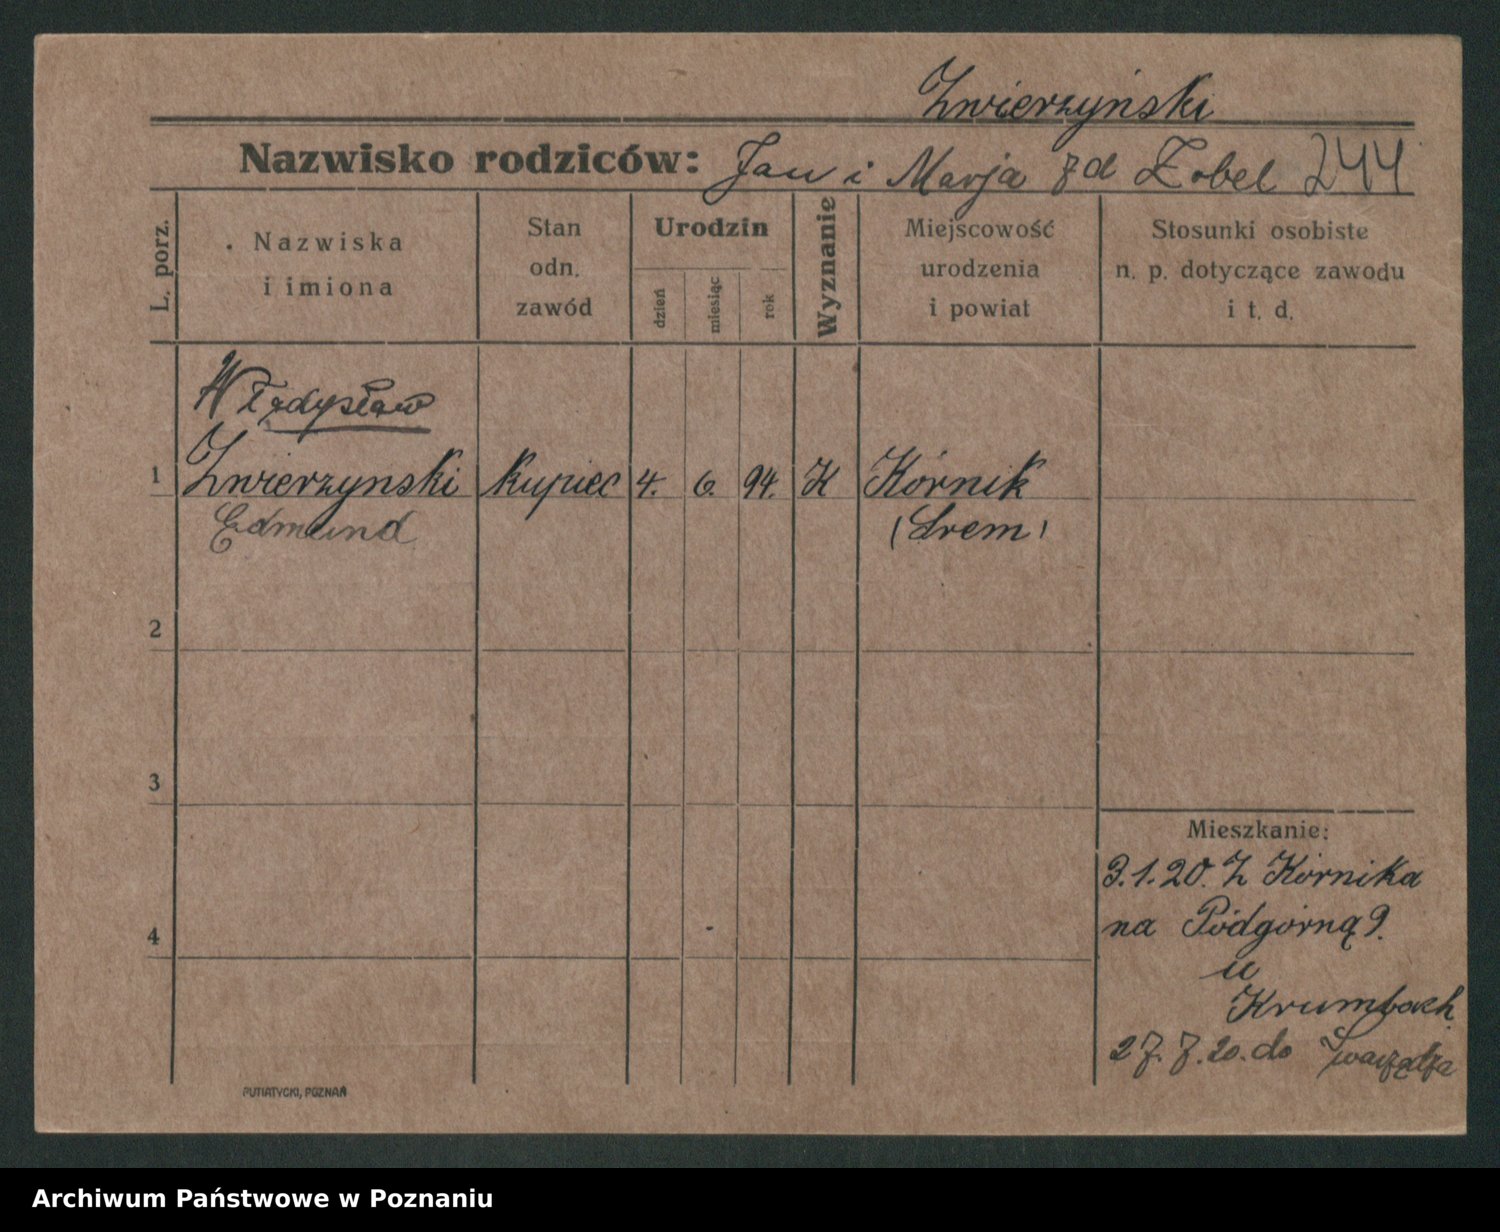 Zwierzyński
Nazwisko rodziców: Jan i Marja zd Zobel 244
L. porz.
Nazwiska
i imiona
Stan
odn.
zawód
Urodzin
dzień
miesiąc
rok
Wyznanie
Miejscowość
urodzenia
i powiat
Stosunki osobiste
n. p. dotyczące zawodu
i t. d.
Władysław
1 Zwierzynski kupiec 4. 6. 94. K Kórnik
Edmund (Śrem)
2
3
4
Mieszkanie:
3.1.20. Z Kórnika
na Pódgórną 9.
u
Krumbach
27.7.20. do Swarzędza
PUTIATYCKI, POZNAŃ
Archiwum Państwowe w Poznaniu